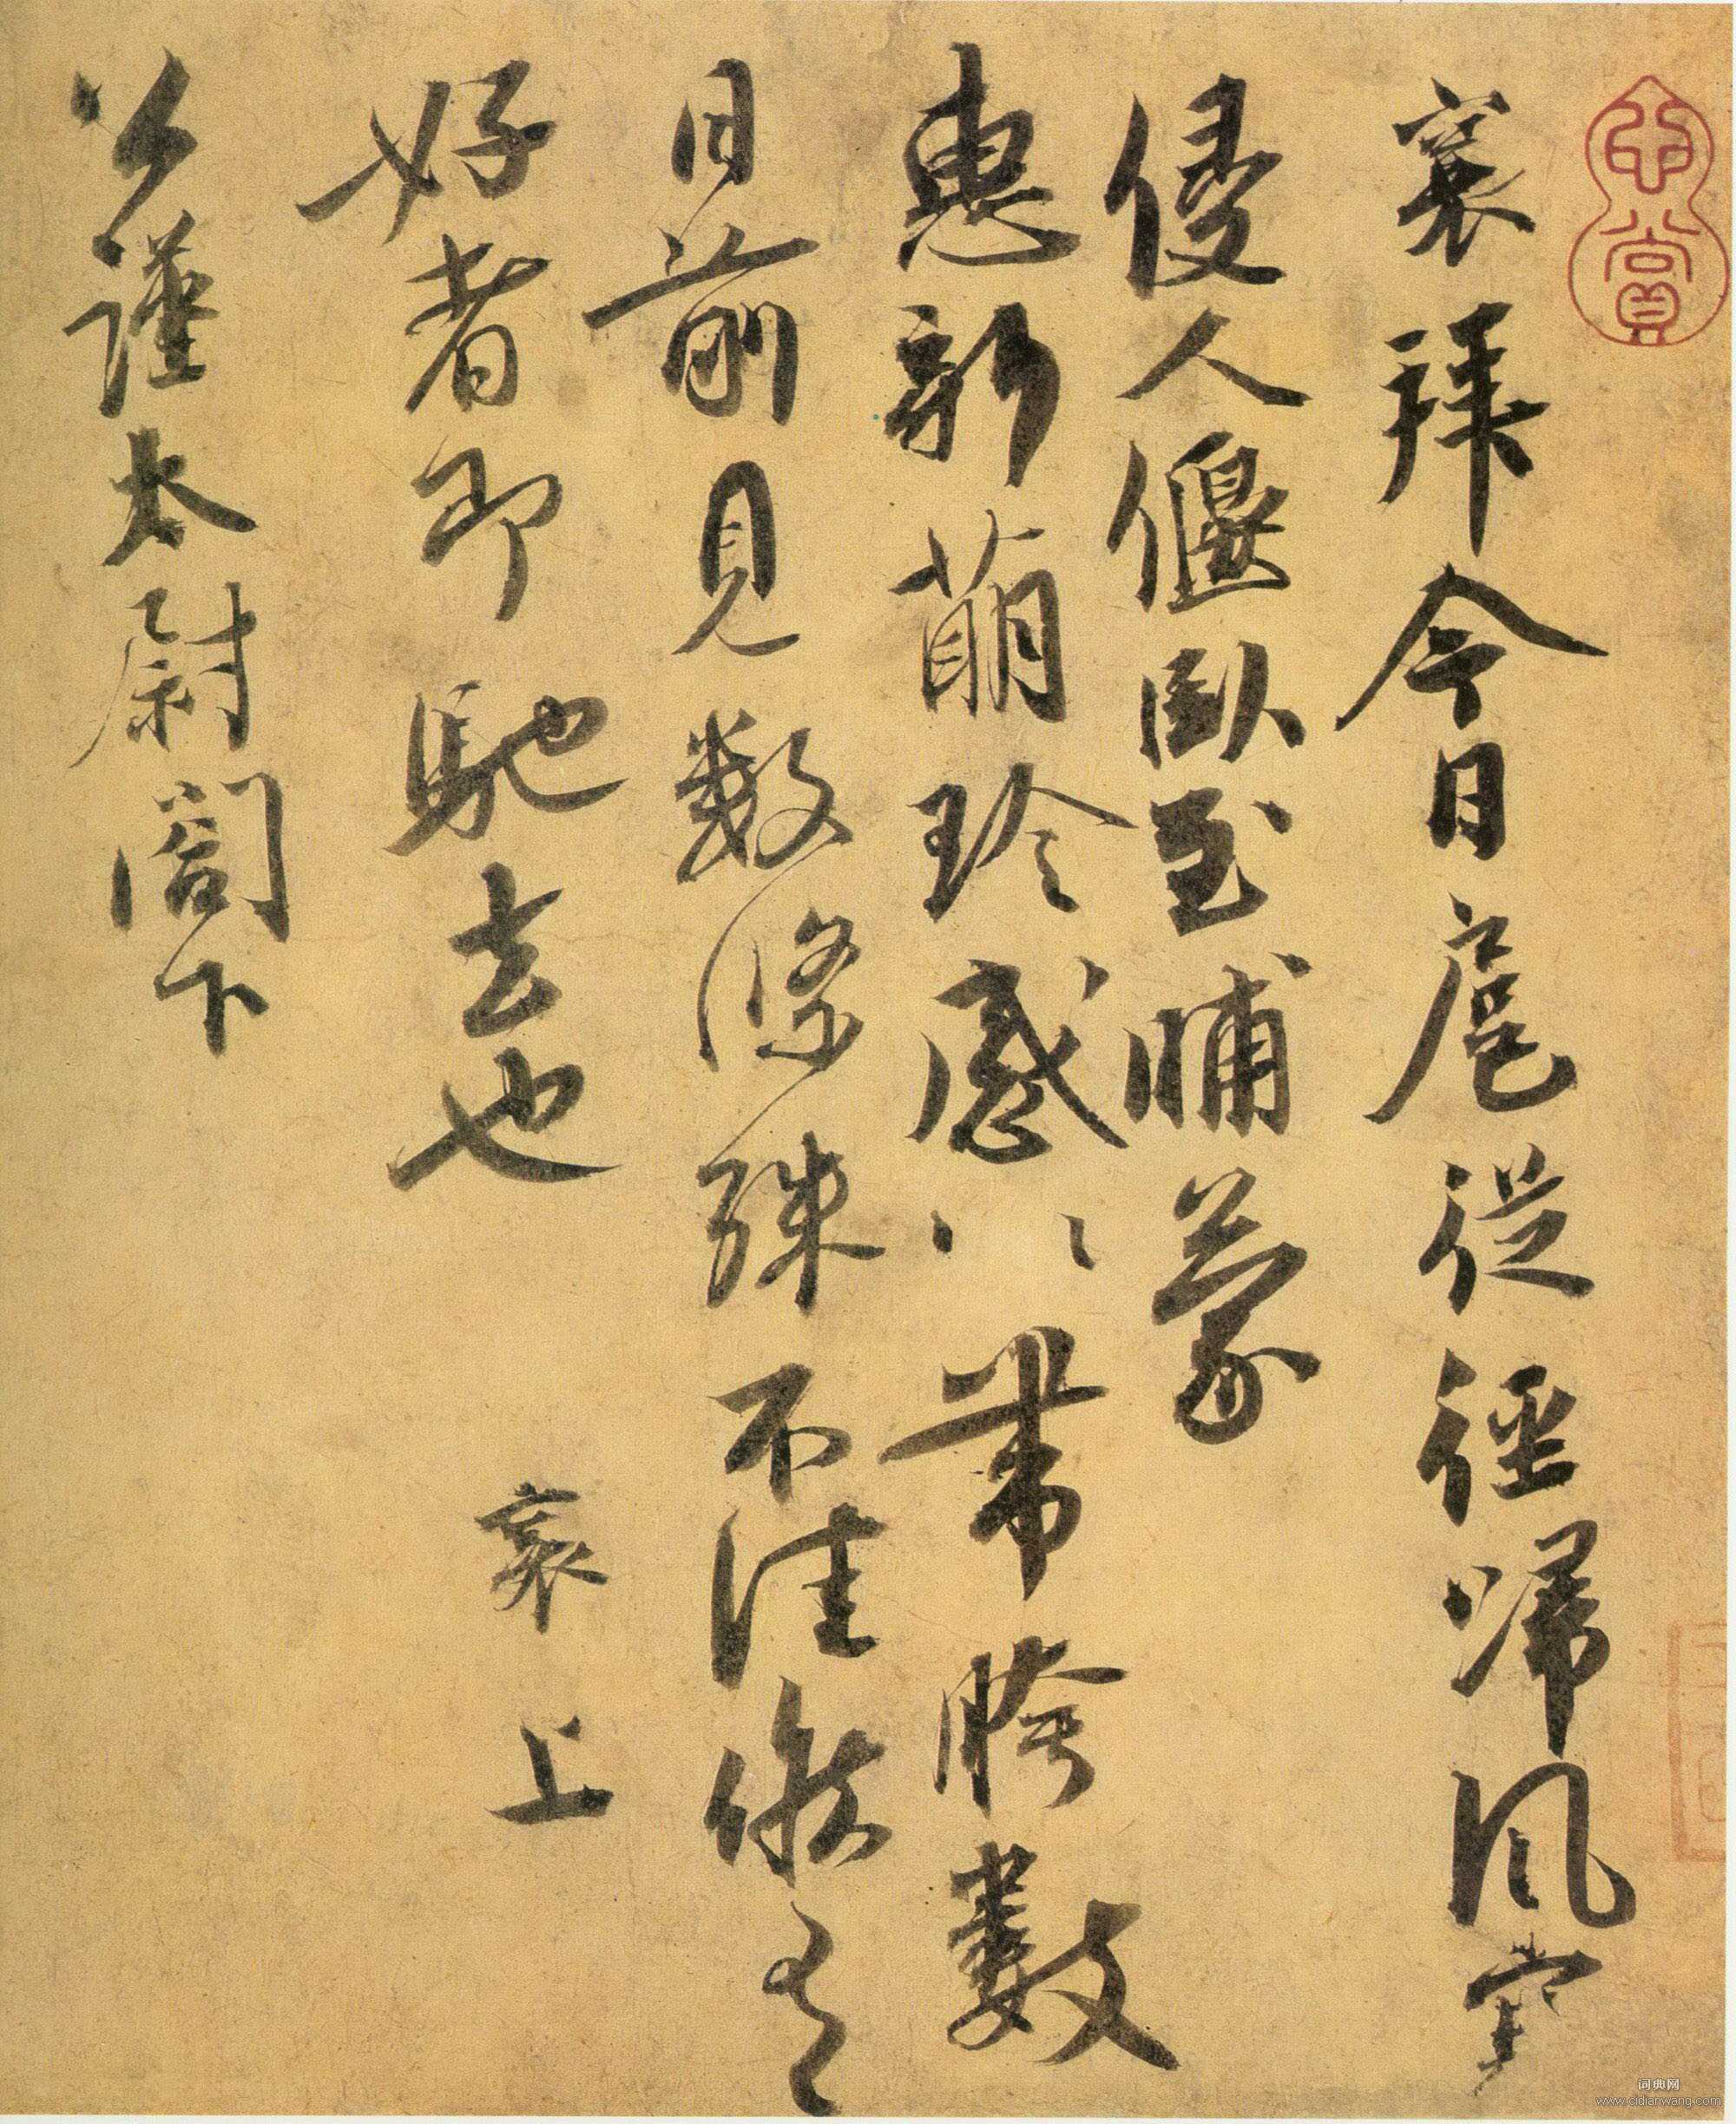 襄拜今日扈從徑歸風寒
侵人偃臥至晡蒙
惠新萌珍感〻帶胯數
日前見數條殊不佳候有
好者即馳去也 襄上
公謹太尉閤下
中賞
词典网
www.cidianwang.com